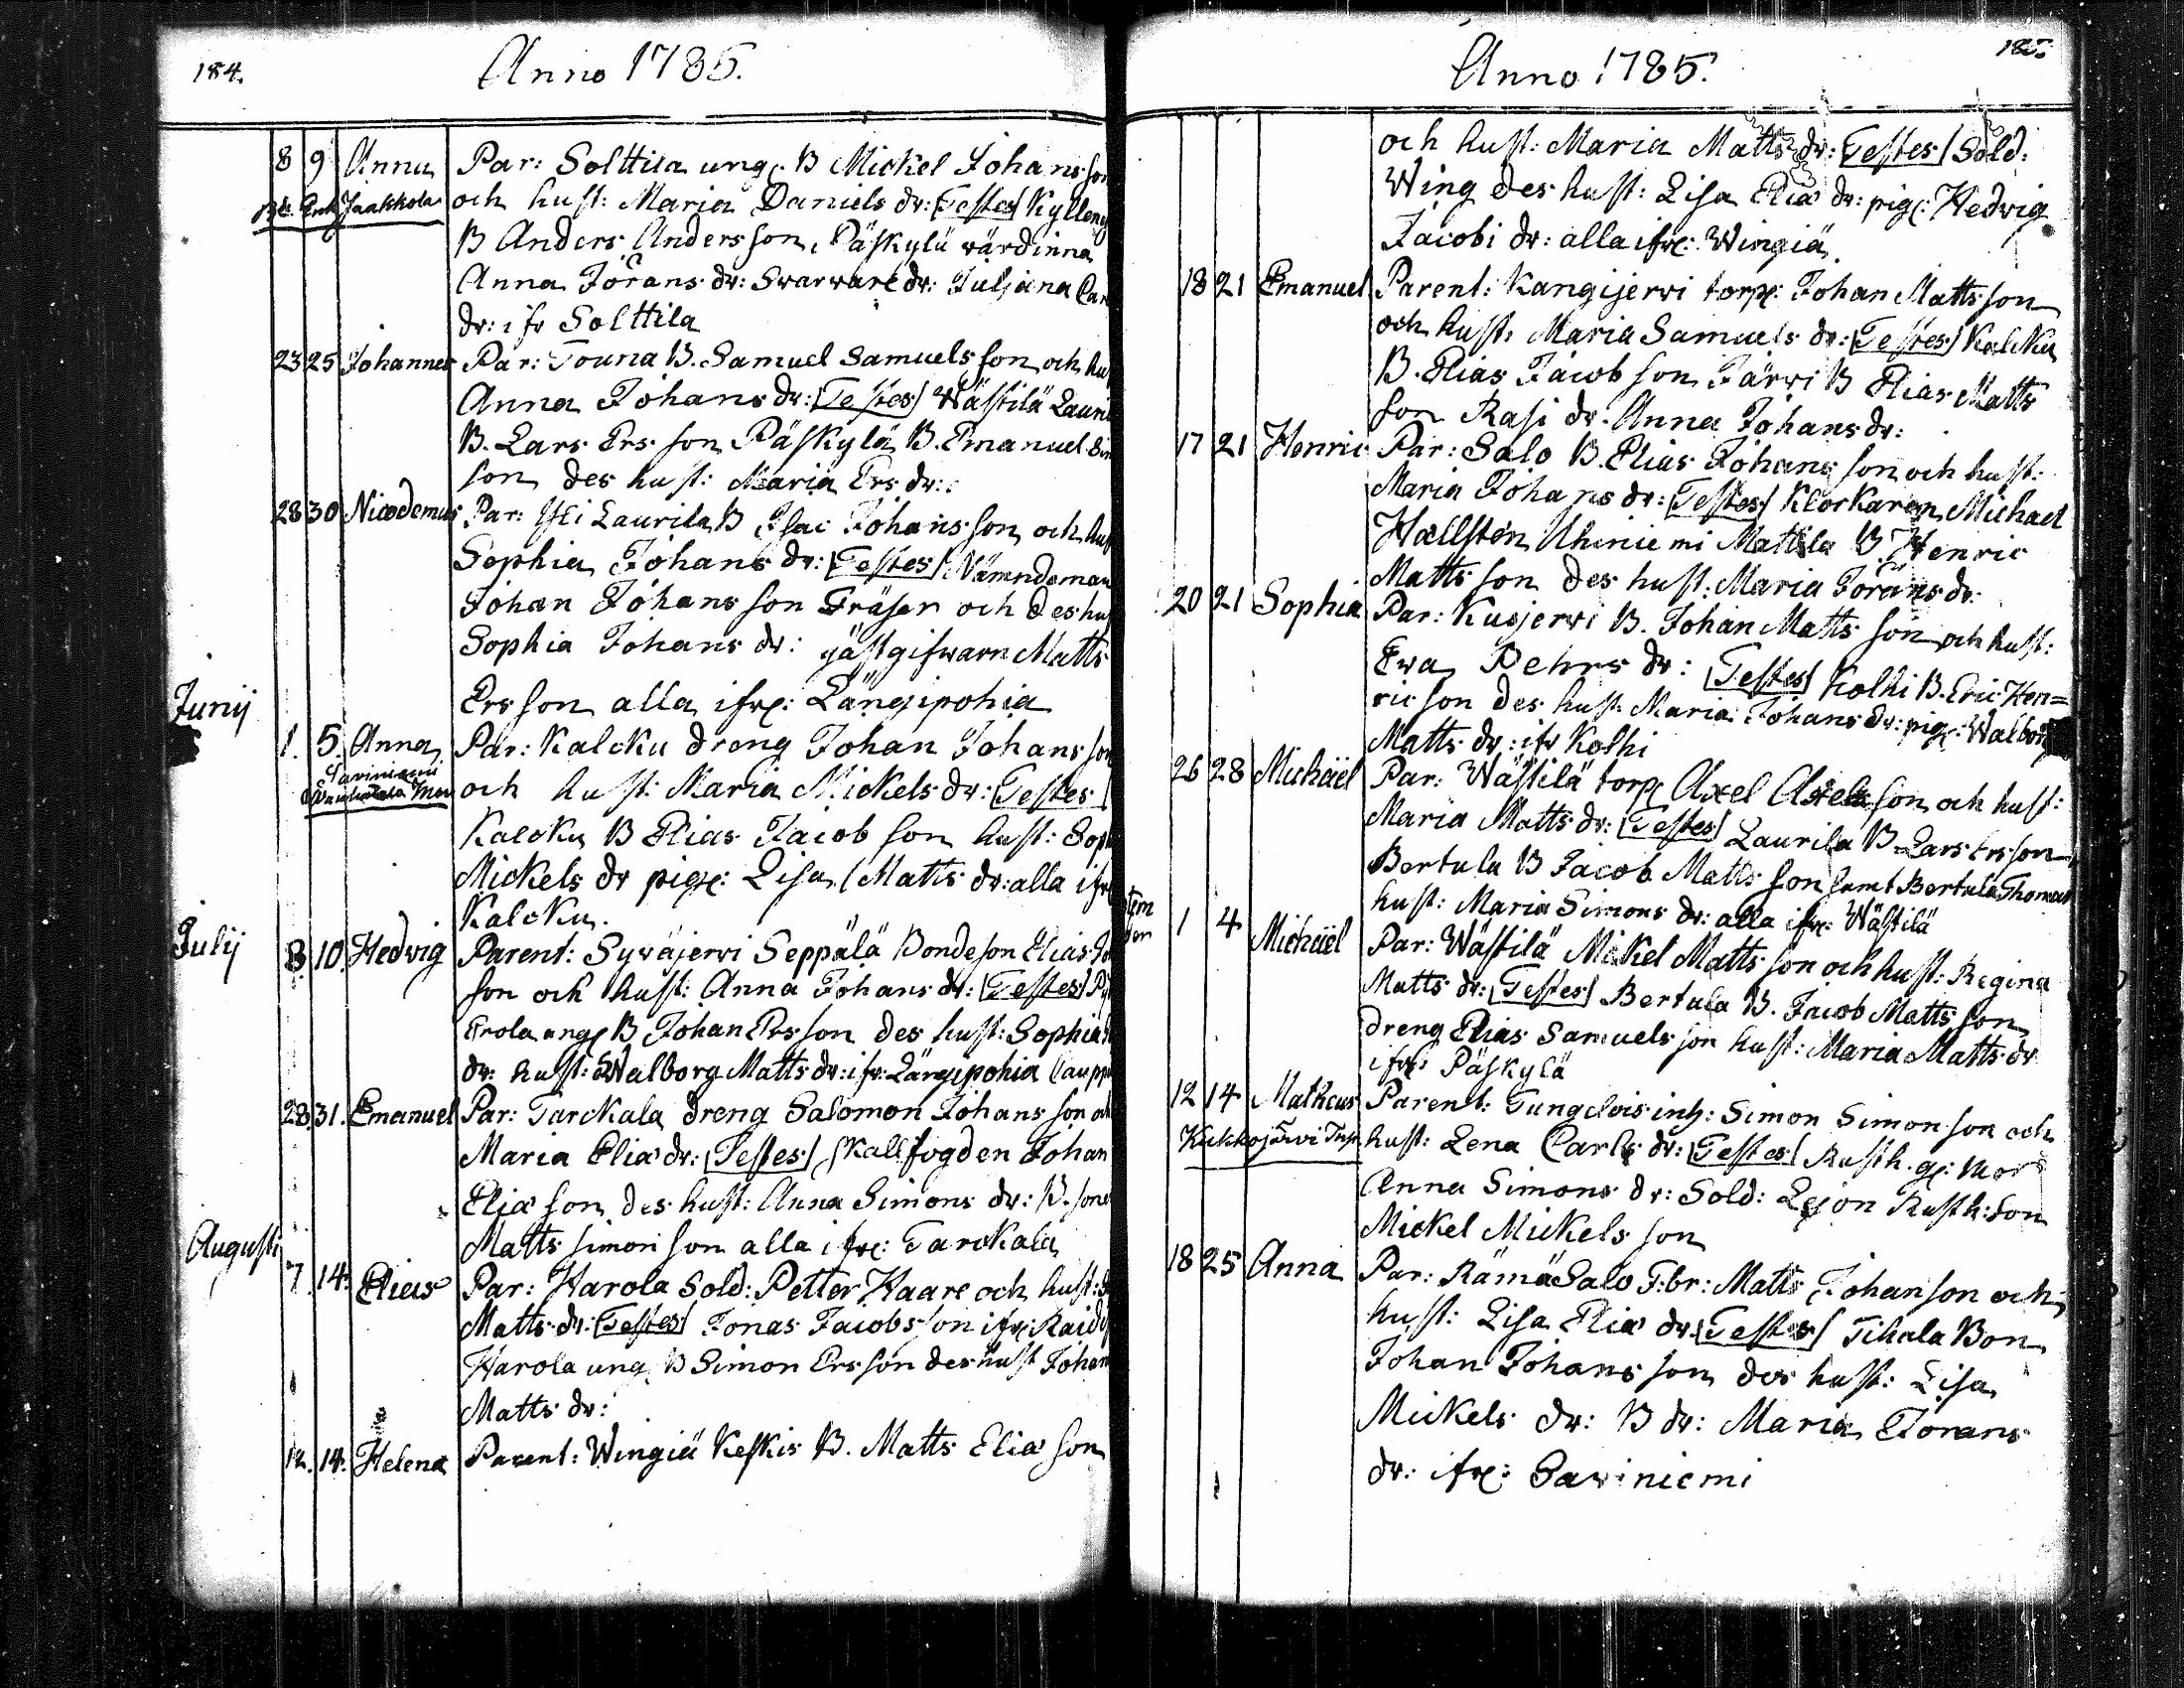 184.
Anno 1785.
8 9 Anna Par: Solttila ung: B Mickel Johans son
Jaakkola och hust: Maria Daniels dr: Testes
B Anders Anders son, Päskylä wärdinna
Anna Jörans dr: Swarware dr: Juliana
dr: ifr Solttila
23 25 Johannes Par: Touna B. Samuel Samuels son och
Anna Johans dr: Testes Wästilä
B. Lars Ers son Päskylä B. Emanuel
son des hust: Maria Ers dr:
28 30 Nicodemus Par: Yli Laurila B Isac Johans son och
Sophia Johans dr: Testes Nämndeman
Johan Johans son Fräser och des
Sophia Johans dr: gästgifwarn Matts
Ers son alla ifr: Längipohia
Junij
1. 5 Anna Par: Kalcku dreng Johan Johans son
och hust: Maria Mickels dr: Testes
Kalcku B Elias Jacob son hust:
Mickels dr pig: Lisa Matts dr: alla ifr
Kalcku.
Julij
8 10. Hedvig Parent: Syväjervi Seppälä Bondeson Elias
son och hust: Anna Johans dr: Testes
Erola ung B Johan Ers son des hust: Sophia
dr: hust: Walborg Matts dr: ifr Längipohia
28 31. Emanuel Par: Tarckala dreng Salomon Johans son
Maria Eliæ dr: Testes Skallfogden Johan
Eliæ son des hust: Anna Simons dr: B. sone
Matts Simon son alla ifr: Tarckala
Augusti
7 14. Elias Par: Harola Sold: Petter Haare och hust:
Matts dr: Testes Jonas Jacobs son ifr:
Harola ung B Simon Ers son des hust Johan
Matts dr:
12. 14. Helena Parent: Wingiä Keskis B. Matts Eliæ son
185.
Anno 1785.
och hust: Maria Matts dr: Testes Sold:
Wing des hust: Lisa Eliæ dr: pig: Hedvig
Jacobi dr: alla ifr: Wingiä.
18 21 Emanuel Parent: Kangijervi torp: Johan Matts son
och hust: Maria Samuels dr: Testes Kalcku
B. Elias Jacob son Järvi B Elias Matts
son Rasi dr. Anna Johans dr:
17 21 Henric Par: Salo B. Elias Johans son och hust:
Maria Johans dr: Testes Klockaren Michael
Hællsten Uhiniemi Mattila B. Henric
Matts son des hust: Maria Jörans dr:
20 21 Sophia Par: Kusjervi B. Johan Matts son och hust:
Ewa Pehrs dr: Testes Kolhi B. Eric Hen=
ric son des hust: Maria Johans dr: pig: Walborg
Matts dr: ifr Kolhi
26 28 Michäel Par: Wästilä torp Axel Axels son och hust:
Maria Matts dr: Testes Laurila B. Lars Ers son
Bertula B Jacob Matts son samt Bertula Thomas
hust: Maria Simons dr: alla ifr: Wästilä
1 4 Michäel Par: Wästilä Mickel Matts son och hust: Regina
Matts dr: Testes Bertula B. Jacob Matts son
dreng Elias Samuels son hust: Maria Matts dr
ifr: Päskylä
12 14 Matheus Parent: Tungelois inh: Simon Simon son och
Kukkojärvi hust: Lena Carls dr: Testes Rusth. g: mor
Anna Simons dr: Sold: Lejon Rusth: son
Mickel Mickels son
18 25 Anna Par: Rämä Salo T:br: Matts Johan son och
hust: Lisa Eliæ dr: Testes Tihala Bon
Johan Johans son des hust: Lisa
Mickels dr: B dr: Maria Jörans
dr: ifr: Saviniemi